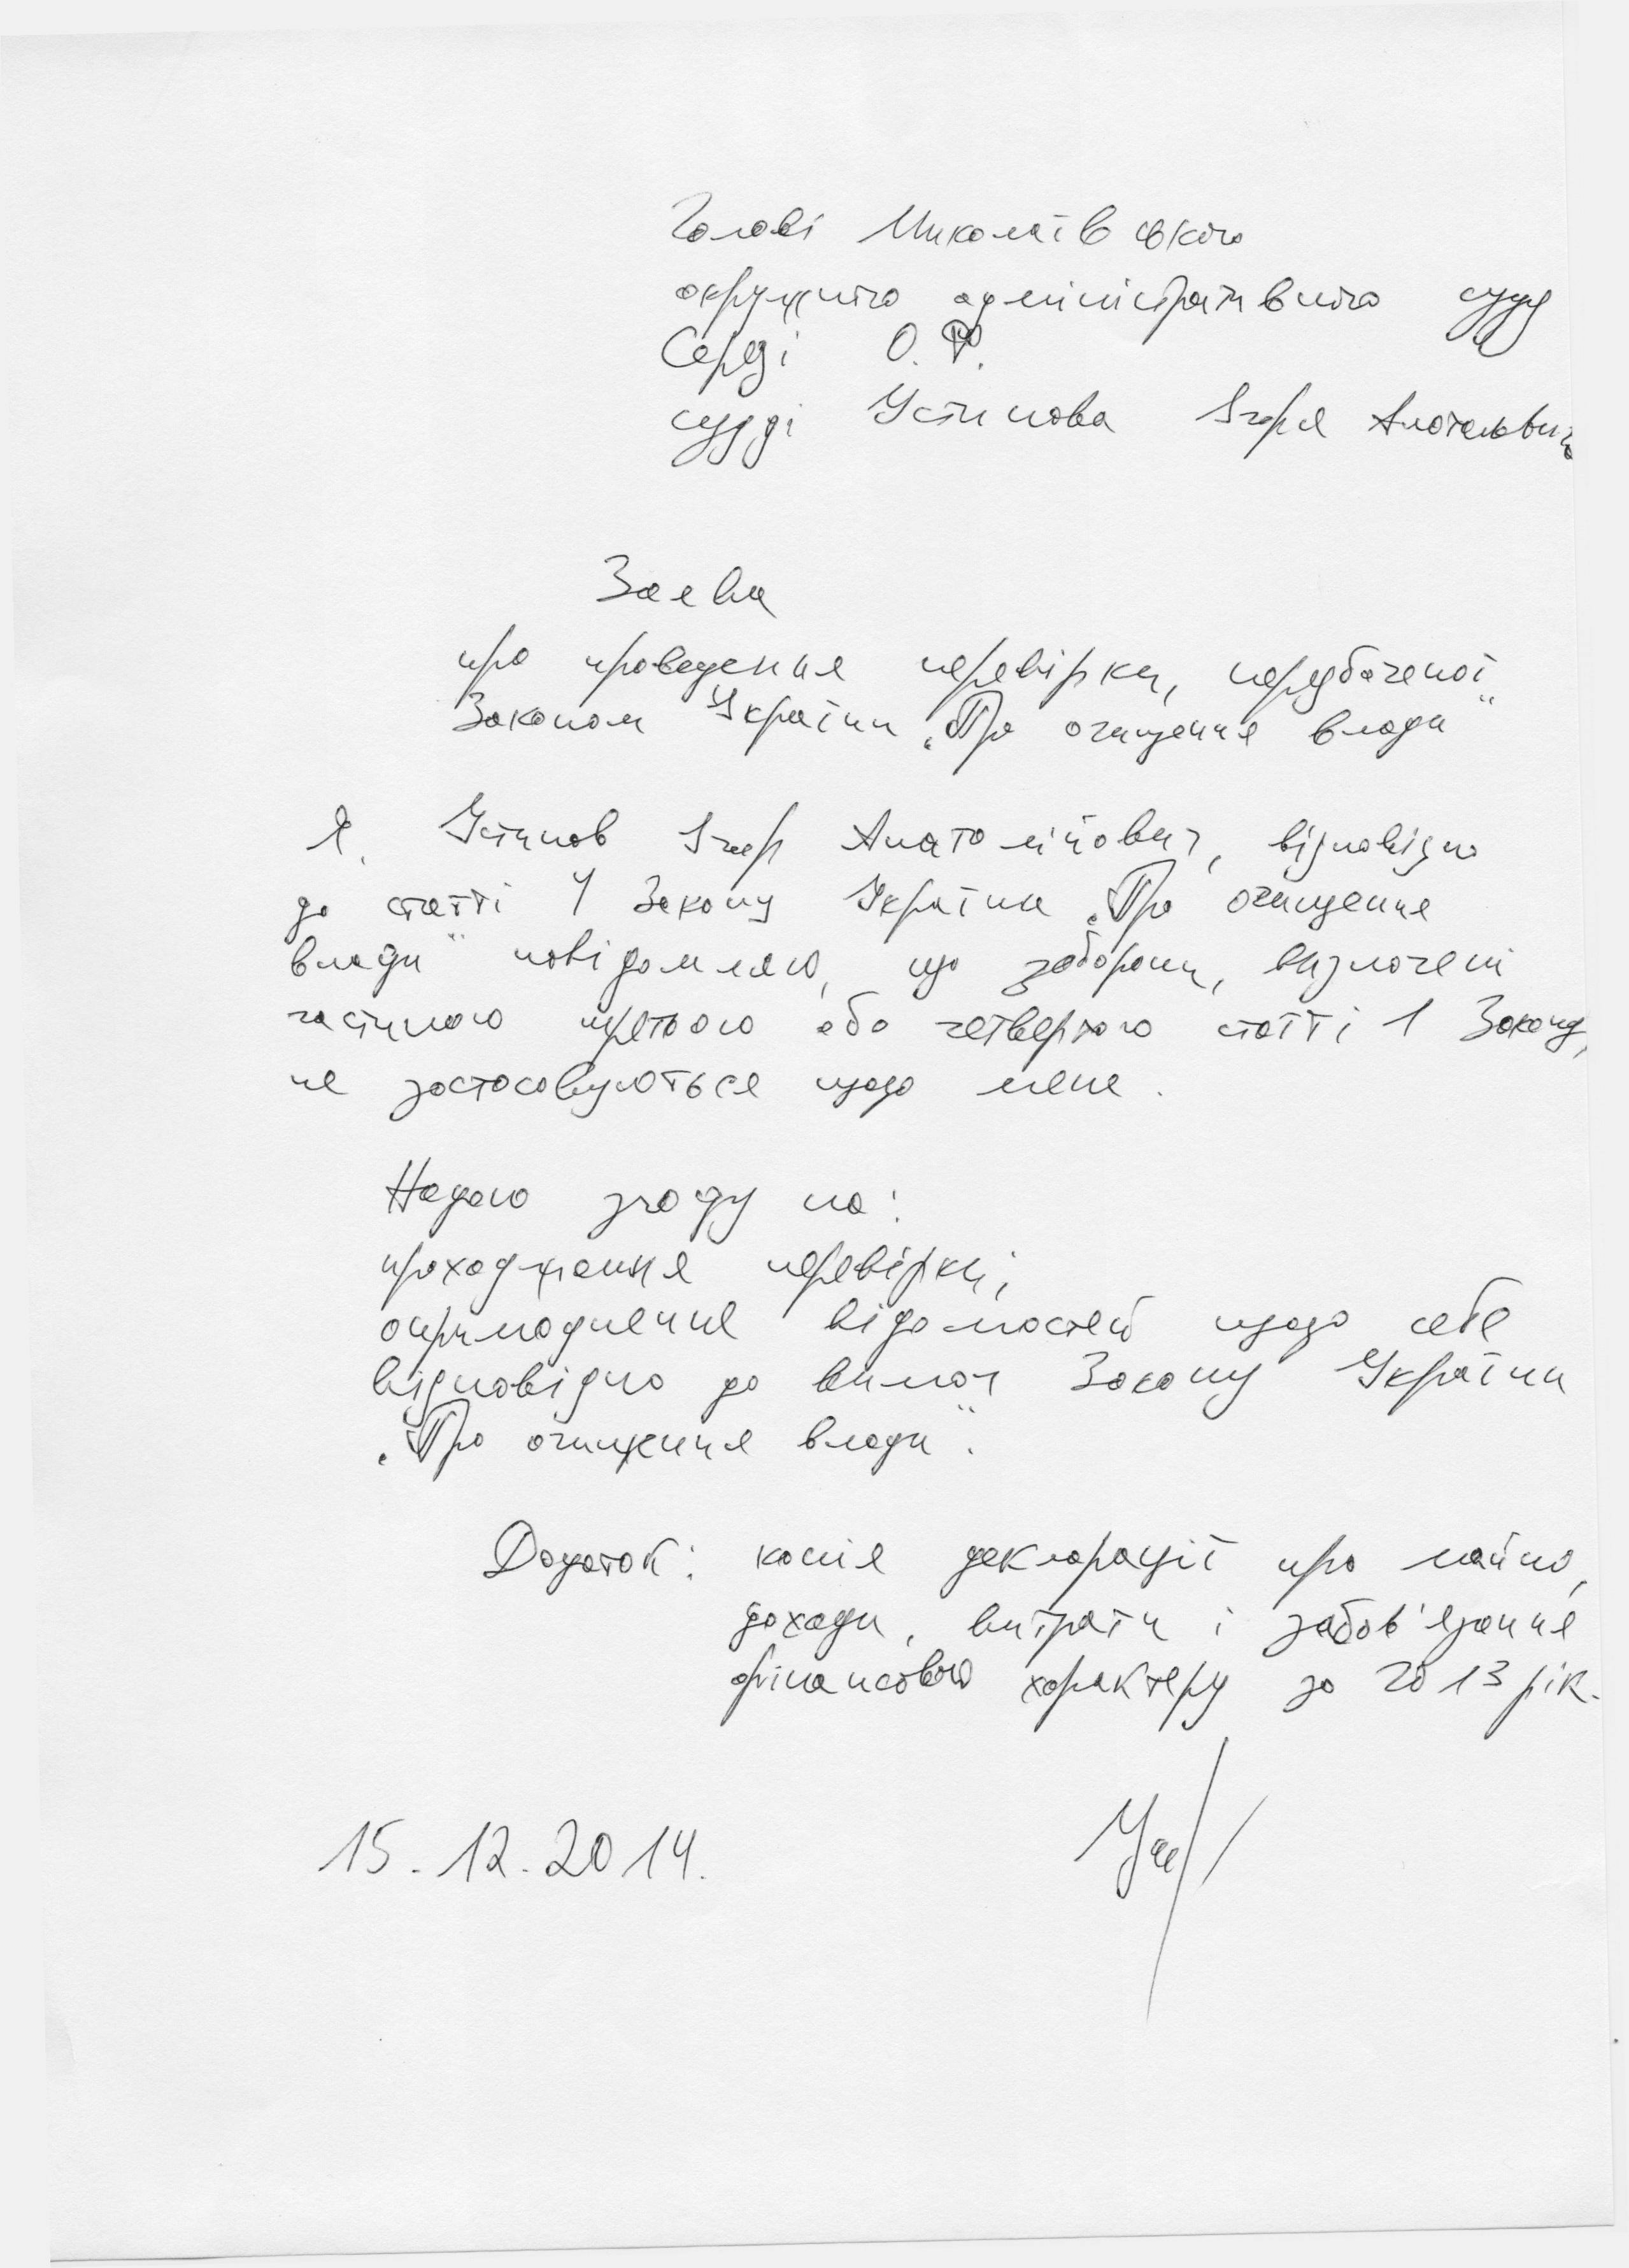 Голові Миколаївського
окружного адміністративного суду
Середі О.Ф.
судді Устинова Ігоря Анатолійовича
Заява
про проведення перевірки, передбаченої
Законом України „Про очищення влади"
Я, Устинов Ігор Анатолійович, відповідно
до статті 4 Закону України „Про очищення
влади" повідомляю, що заборони, визначені
частиною третьою або четвертою статті 1 Закону,
не застосовуються щодо мене.
Надаю згоду на:
проходження перевірки;
оприлюднення відомостей щодо себе
відповідно до вимог Закону України
„Про очищення влади".
Додаток: копія декларації про майно,
доходи, витрати і забов'язання
фінансового характеру за 2013 рік.
15.12.2014.